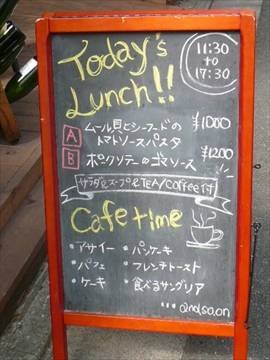 Today's
Lunch!!
11:30
to
17:30
A ムール貝とシーフードの ¥1000
トマトソースパスタ
B ポークソテーのゴマソース ¥1200
サラダ&スープ&TEA/Coffee付
Cafe time
・アサイー ・パンケーキ
・パフェ ・フレンチトースト
・ケーキ ・食べるサングリア
... and so, on